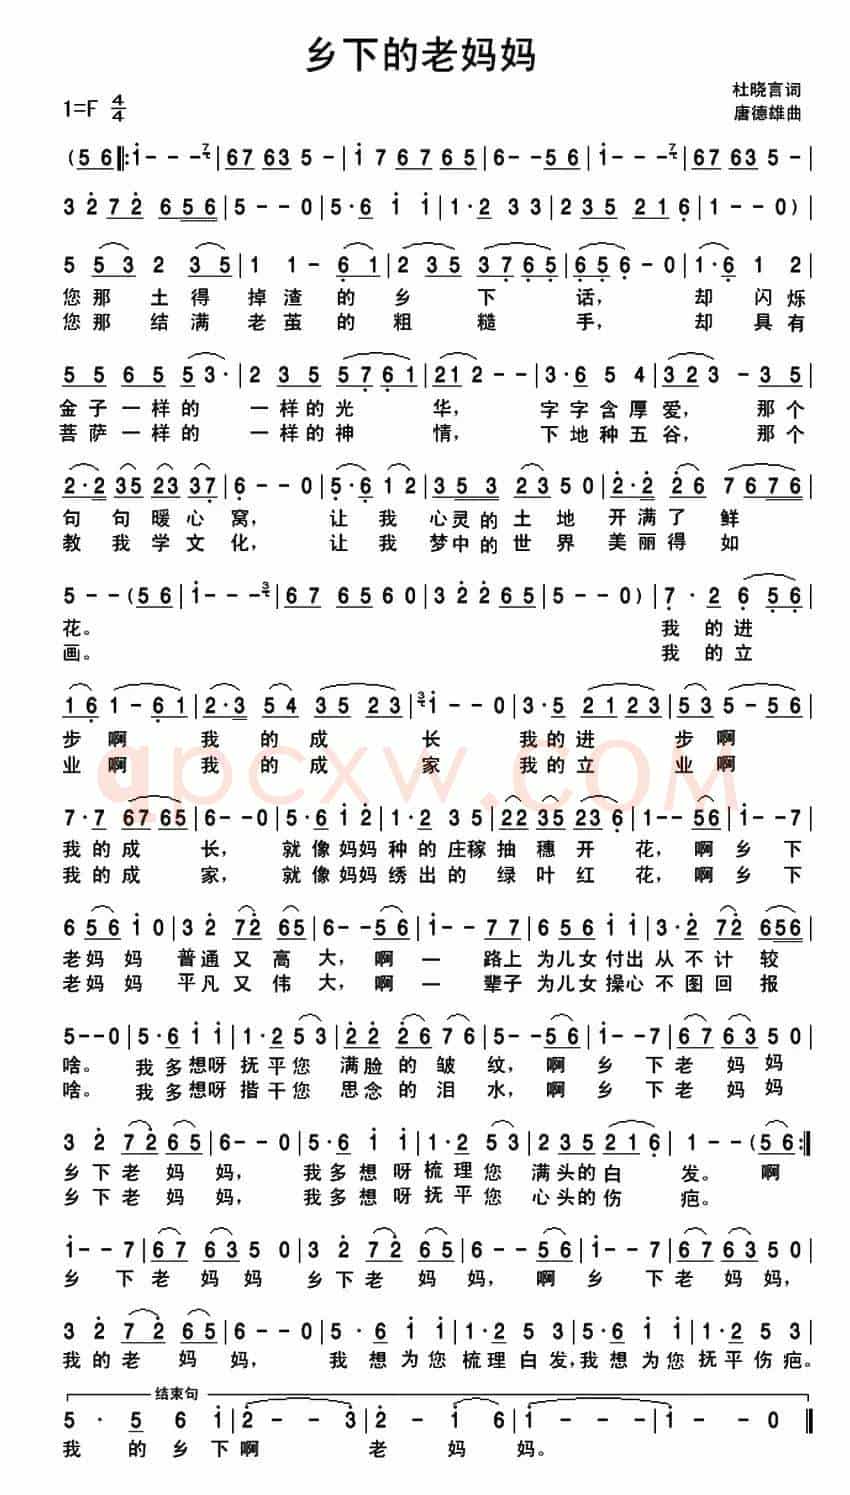 乡下的老妈妈
杜晓言词
1=F 4/4
唐德雄曲
(5 6‖:i - - 7|67 63 5 -|i 7 67 65|6 - - 56|i - - 7|67 63 5 -|
3 2 72 656|5 - - 0|5·6 i i|1·2 3 3|235 216|1 - - 0)|
5 53 2 35|1 1 - 61|235 3765|656 - 0|1·6 1 2|
您那土得掉渣的乡下话，却闪烁
您那结满老茧的粗糙手，却具有
5 5 6 5 53·|2 3 5 5761|212 - -|3·6 5 4|323 - 35|
金子一样的一样的光华，字字含厚爱，那个
菩萨一样的一样的神情，下地种五谷，那个
2·2 35 23 37|6 - - 0|5·6 1 2|353 2350|2·2 26 7676|
句句暖心窝，让我心灵的土地开满了鲜
教我学文化，让我梦中的世界美丽得如
5 - - (56|i - - 3|67 6560|32 2656|5 - - 0)|7·2 6 56|
花。我的进
画。我的立
16 1 - 61|2·3 54 35 23|i - - 0|3·5 2123|535 - 56|
步啊我的成长我的进步啊
业啊我的成家我的立业啊
qpcxw.COM
7·7 67 65|6 - - 0|5·6 i 2|1·2 35|22 35 236|1 - - 56|i - - 7|
我的成长，就像妈妈种的庄稼抽穗开花，啊乡下
我的成家，就像妈妈绣出的绿叶红花，啊乡下
6 56 i 0|3 2 72 65|6 - - 56|i - - 77|656 i i|3·2 72 656|
老妈妈普通又高大，啊一路上为儿女付出从不计较
老妈妈平凡又伟大，啊一辈子为儿女操心不图回报
5 - - 0|5·6 i i|1·2 53|22 26 76|5 - - 56|i - - 7|67 6350|
啥。我多想呀抚平您满脸的皱纹，啊乡下老妈妈
啥。我多想呀揩干您思念的泪水，啊乡下老妈妈
3 2 72 65|6 - - 0|5·6 i i|1·2 53|235 216|1 - - (56:‖
乡下老妈妈，我多想呀梳理您满头的白发。啊
乡下老妈妈，我多想呀抚平您心头的伤疤。
i - - 7|67 6350|3 2 72 65|6 - - 56|i - - 7|67 6350|
乡下老妈妈乡下老妈妈，啊乡下老妈妈，
3 2 72 65|6 - - 0|5·6 i i|1·2 53|5·6 i i|1·2 53|
我的老妈妈，我想为您梳理白发，我想为您抚平伤疤。
结束句
5·5 6 i|2 - - 3|2 - i 6|i - - -|i - 0‖
我的乡下啊老妈妈。